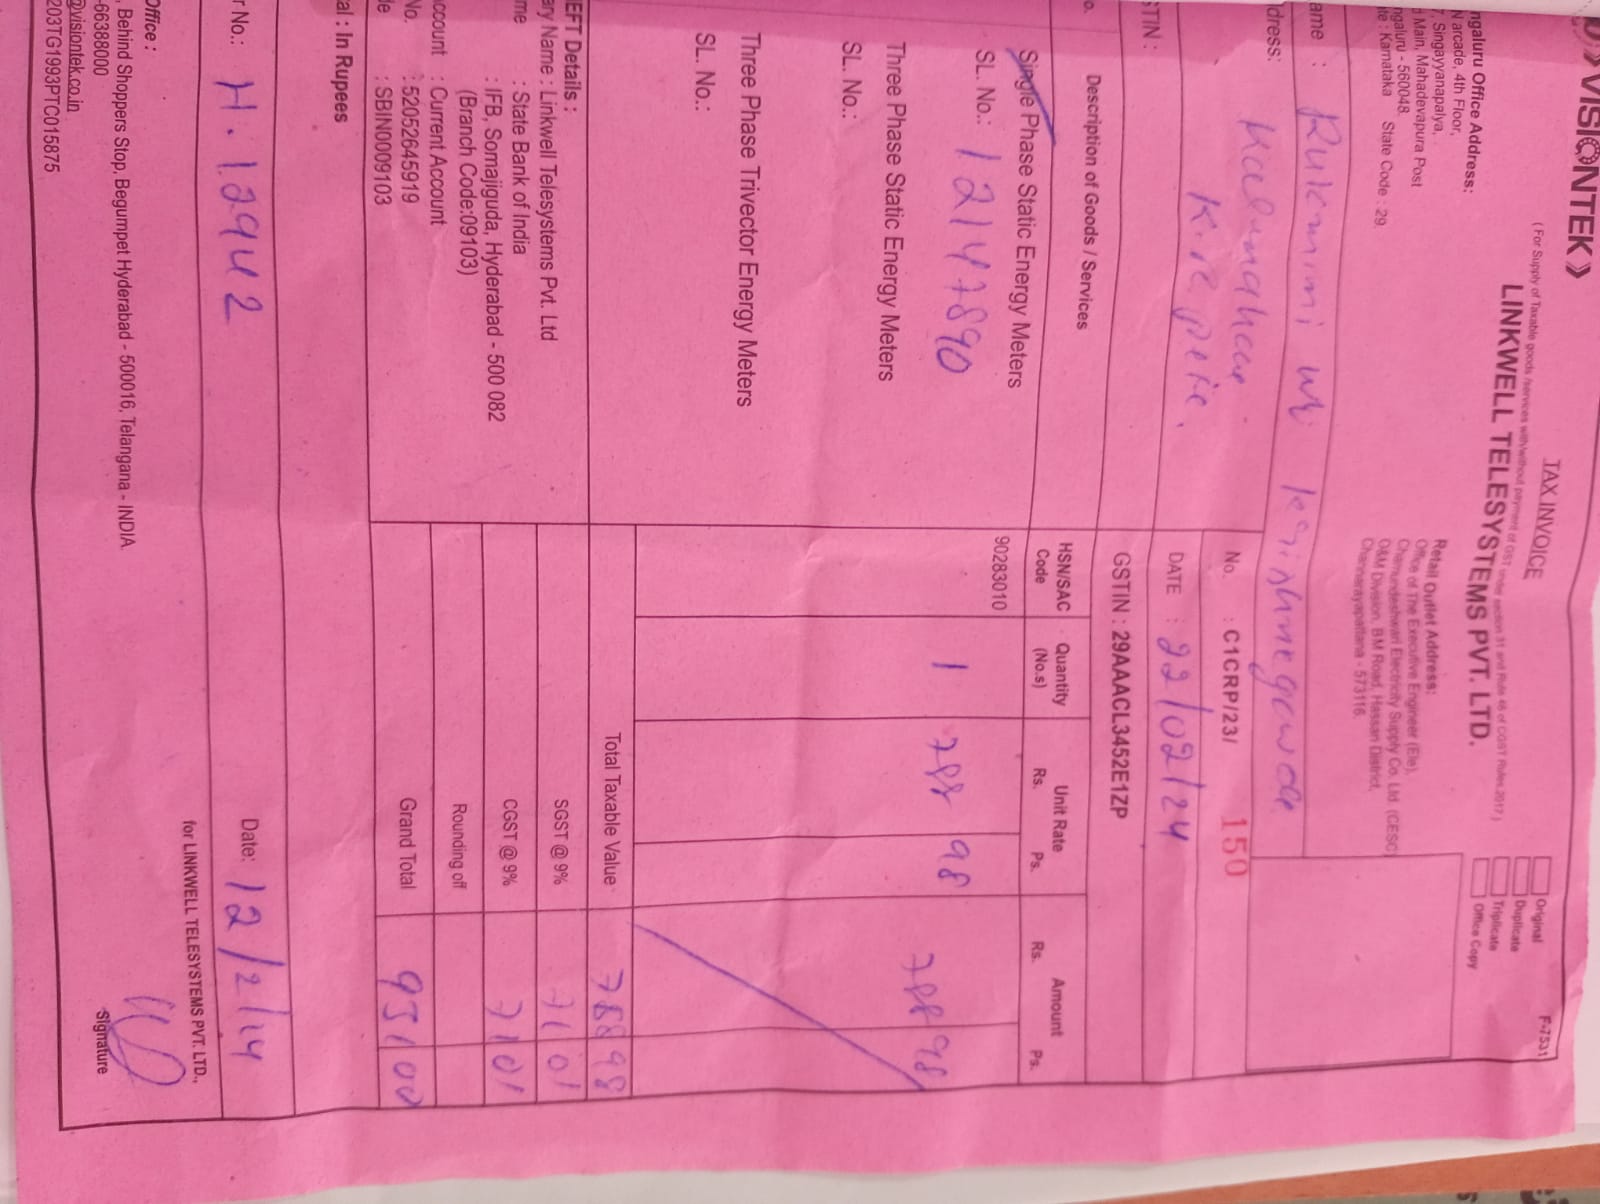 VISIONTEK》
TAX INVOICE
F-7531
( For Supply of Taxable goods /services with/without payment of GST under section 31 and Rule 46 of CGST Rules 2017 )
LINKWELL TELESYSTEMS PVT. LTD.
Original
Duplicate
Triplicate
Office Copy
ngaluru Office Address:
N arcade, 4th Floor,
7, Singayyanapalya,
d Main, Mahadevapura Post
ngaluru - 560048.
te : Karnataka State Code : 29
Retail Outlet Address:
Office of The Executive Engineer (Ele),
Chamundeshwari Electricity Supply Co. Ltd. (CESC)
O&M Division, BM Road, Hassan District,
Channarayapattana - 573116.
ame : Rukmini
dress:
No. : C1CRP/23/ 150
DATE : 22/02/24
STIN :
GSTIN : 29AAACL3452E1ZP
o. Description of Goods / Services HSN/SAC Code Quantity (No.s) Unit Rate Rs. Ps. Amount Rs. Ps.
Single Phase Static Energy Meters 90283010
SL. No.: 12147890 1 788 98 788 98
Three Phase Static Energy Meters
SL. No.:
Three Phase Trivector Energy Meters
SL. No.:
Total Taxable Value 788 98
EFT Details :
ary Name : Linkwell Telesystems Pvt. Ltd
SGST @ 9% 71 01
me : State Bank of India
: IFB, Somajiguda, Hyderabad - 500 082
CGST @ 9% 71 01
(Branch Code:09103)
ccount : Current Account
Rounding off
No. : 52052645919
de : SBIN0009103
Grand Total 931 00
al : In Rupees
r No.: H. 12942 Date: 12/2/24
for LINKWELL TELESYSTEMS PVT. LTD.,
Signature
Office :
, Behind Shoppers Stop, Begumpet Hyderabad - 500016, Telangana - INDIA
-66388000
@visiontek.co.in
203TG1993PTC015875